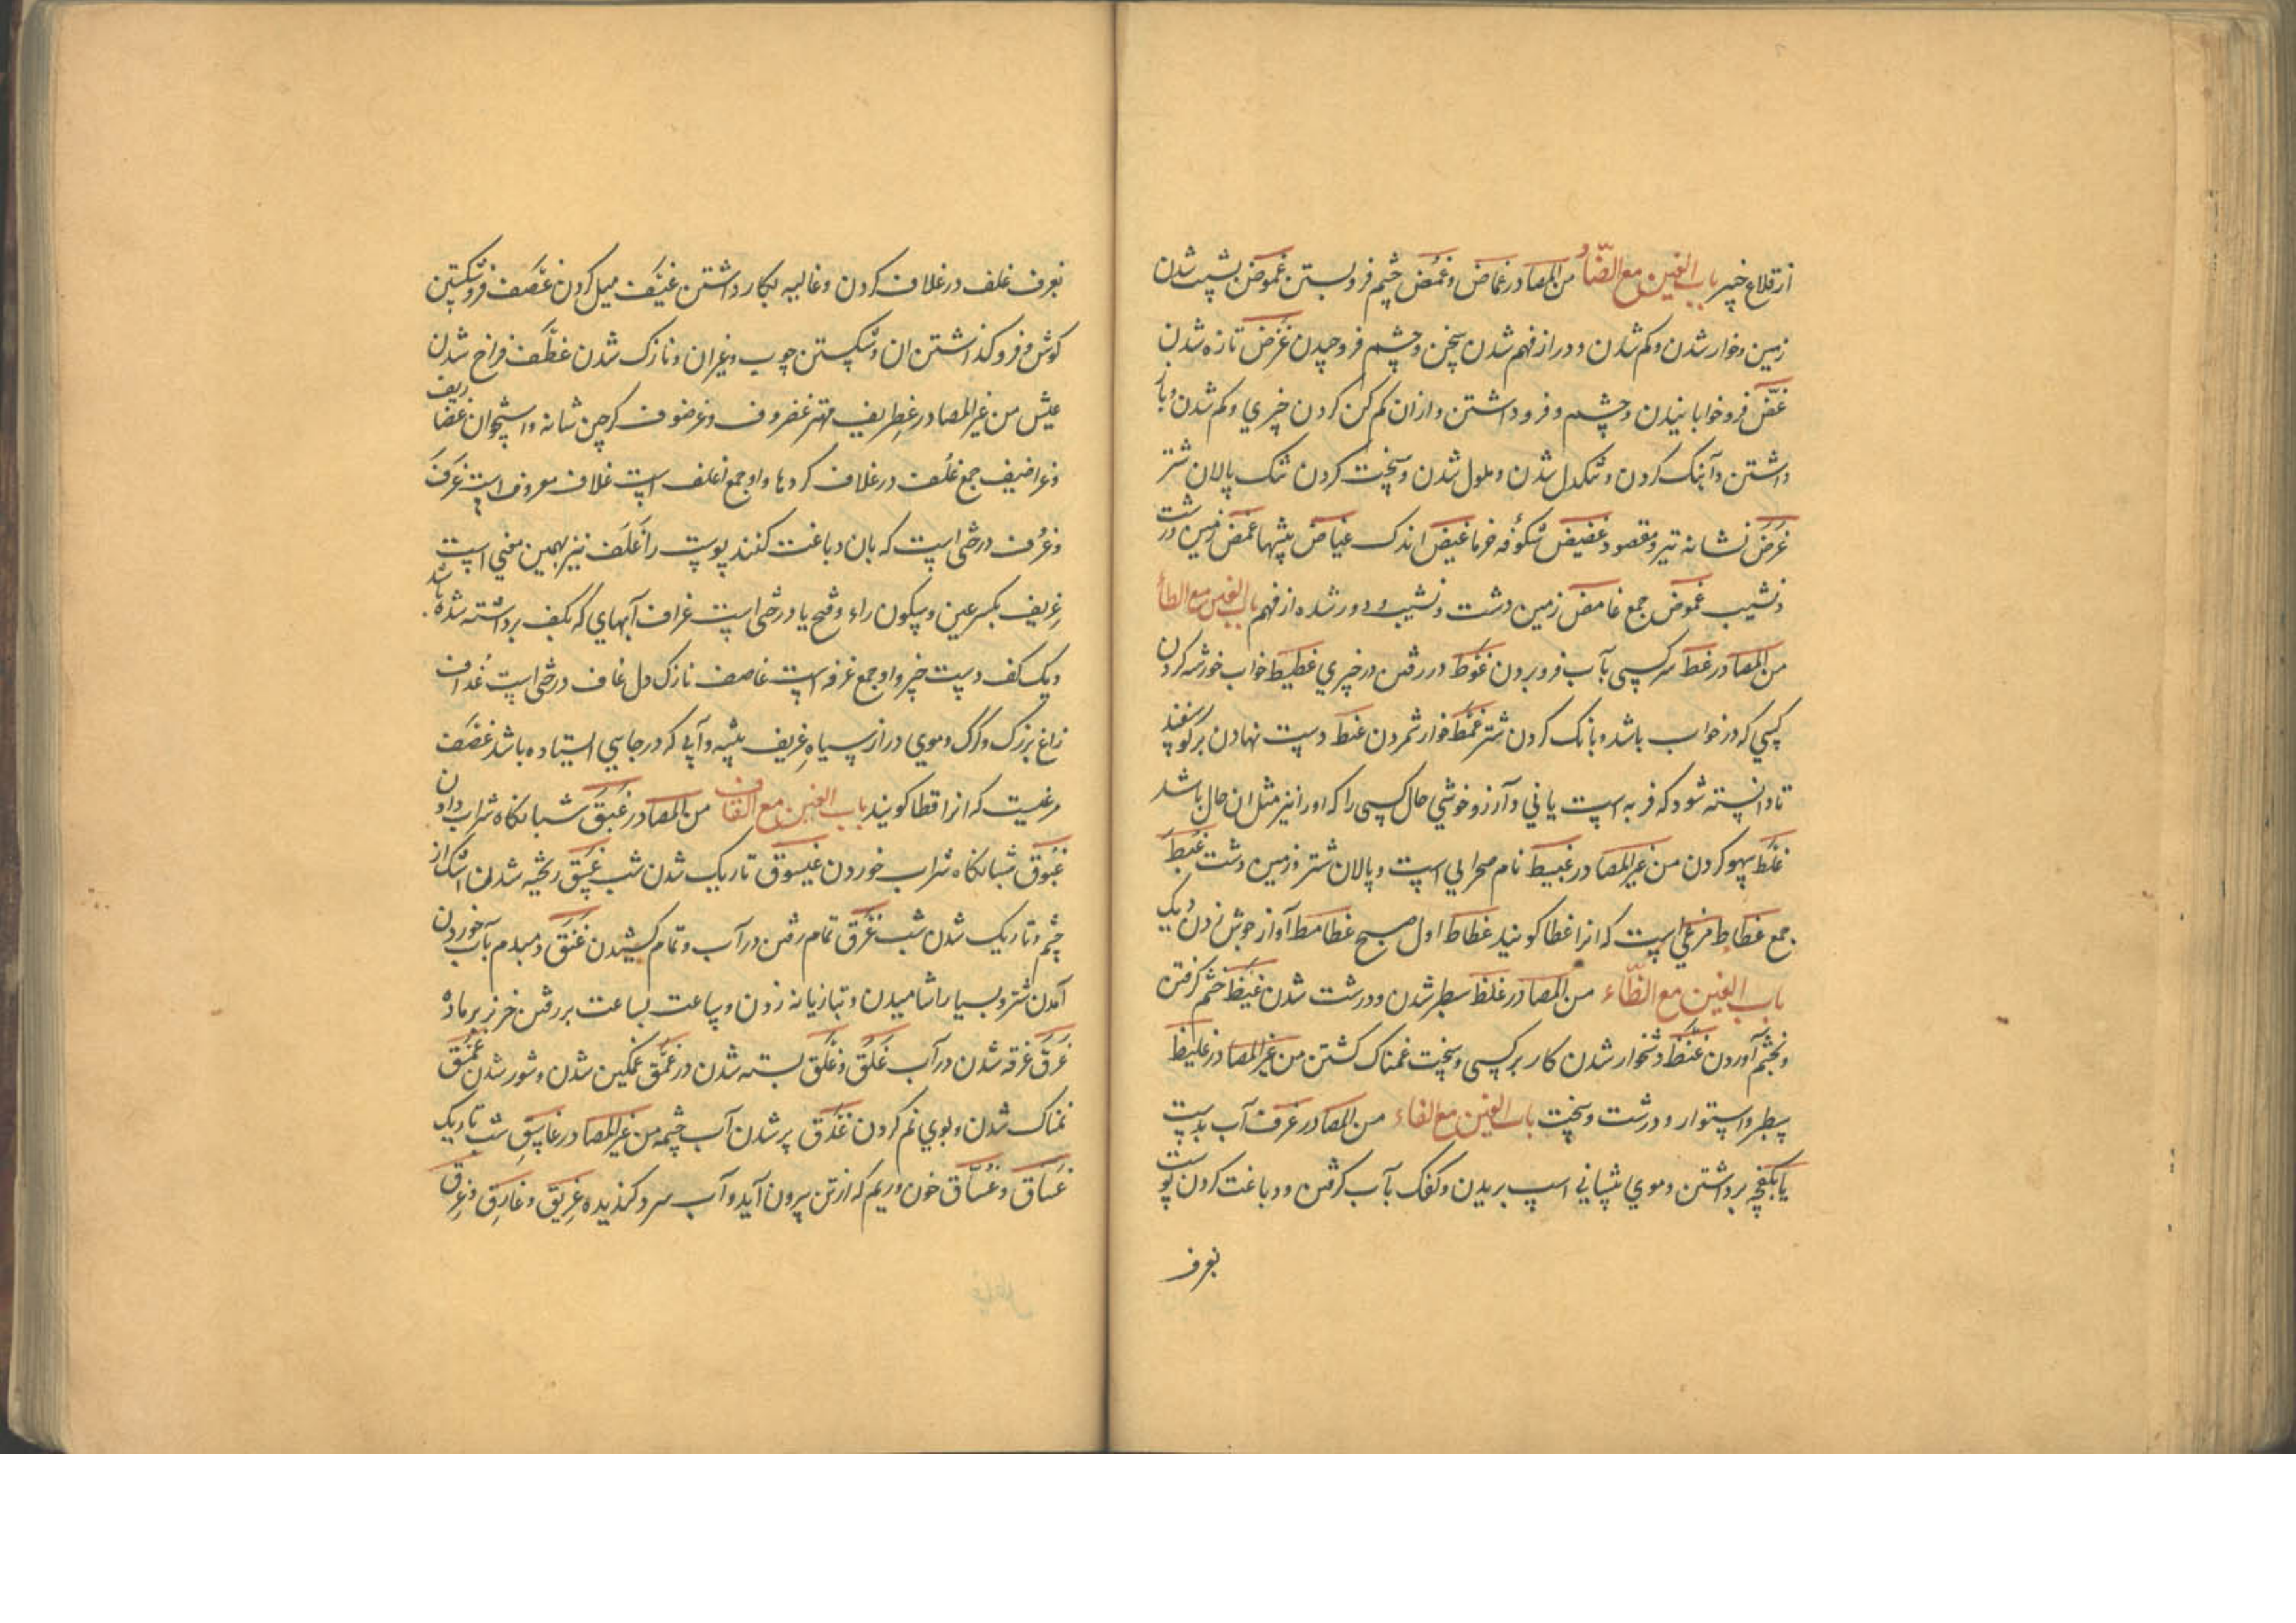 از قلاع خیبر باب الغین مع الضاد من المصادر غماض و غمض چشم فرو بستن غموض پست شدن
زمین و خوار شدن و کم شدن و دور از فهم شدن سخن و چشم فروچیدن غرض تازه شدن
غض فرو خوابانیدن چشم و فرو داشتن و از ان کم کن کردن چیزی و کم شدن و باز
داشتن و آهنک کردن و تنکدل شدن و ملول شدن و سخت کردن تنک پالان شتر
غرض نشانه تیر و مقصود غضیض شکوفه خرما غیض اندک غیاض بیشها غمض زمین درشت
و نشیب غموض جمع غامض زمین دشت و نشیب و دور شده از فهم باب الغین مع الطاء
من المصادر غط سر کسی بآب فرو بردن غوط در رفتن در چیزی غطیط خواب خورشه کردن
کسی که در خواب باشد و بانک کردن شتر غمط خوار شمردن غبط دست نهادن بر کوسفند
تا دانسته شود که فربه است یا نی و آرزو خوشی حال کسی را که او را نیز مثل ان حال باشد
غلط سهو کردن من غیر المصادر غبیط نام صحرایی است و پالان شتر و زمین دشت غبط
جمع غطاط مرغی است که انرا غطا کویند غطاط اول صبح غطامط آواز جوش زدن دیک
باب الغین مع الظاء من المصادر غلظ سطبر شدن و درشت شدن غیظ خشم کرفتن
و بخشم آوردن غنظ دشخوار شدن کار بر کسی و سخت غمناک کشتن من غیر المصادر غلیظ
سطبر و استوار و درشت و سخت باب الغین مع الفاء من المصادر غرف آب بدست
یا بکفچه برداشتن و موی پیشانی اسپ بریدن و کفک بآب کرفتن و دباغت کردن پوست
بغرف
بغرف غلف در غلاف کردن و غالیه بکار داشتن غیف میل کردن غضف فرو شکستن
کوش و فرو کذاشتن ان و شکستن چوب و غیر ان و نازک شدن غطف فراخ شدن
عیش من غیر المصادر غطریف مهتر غضروف و غرضوف کرچن شانه و استخوان غضاریف
و غراضیف جمع غلف در غلاف کردها و او جمع اغلف است غلاف معروف است غرف
و غرف درختی است که بان دباغت کنند پوست را غلف نیز بهمین معنی است
غریف بکسر عین و سکون راء و فتح یا درختی است غراف آبهای که بکف برداشته شده باشد
و یک کف دست چیز و او جمع غرفه است غاصف نازک دل غاف درختی است غداف
زاغ بزرک و کرک و موی دراز سیاه غریف بیشه و آبی که در جایی استاده باشد غضف
مرغیست که انرا قطا کویند باب الغین مع القاف من المصادر غبق شبانکاه شراب دادن
غبوق شبانکاه شراب خوردن غیسوق تاریک شدن شب غسق ریخته شدن اشک از
چشم و تاریک شدن شب غرق تمام رفتن در آب و تمام کشیدن غنق دمبدم بآب خوردن
آمدن شتر و بسیار اشامیدن و تبازیانه زدن و ساعت بساعت بر رفتن خر نر بر ماده
غرق غرقه شدن در آب غلق و غلق بسته شدن در غمق غمکین شدن و شور شدن غمق
نمناک شدن و بوی نم کردن غدق پر شدن آب چشمه من غیر المصادر غاسق شب تاریک
غساق و غساق خون و ریم که از تن بیرون آید و آب سرد کندیده غریق و غارق و غرق